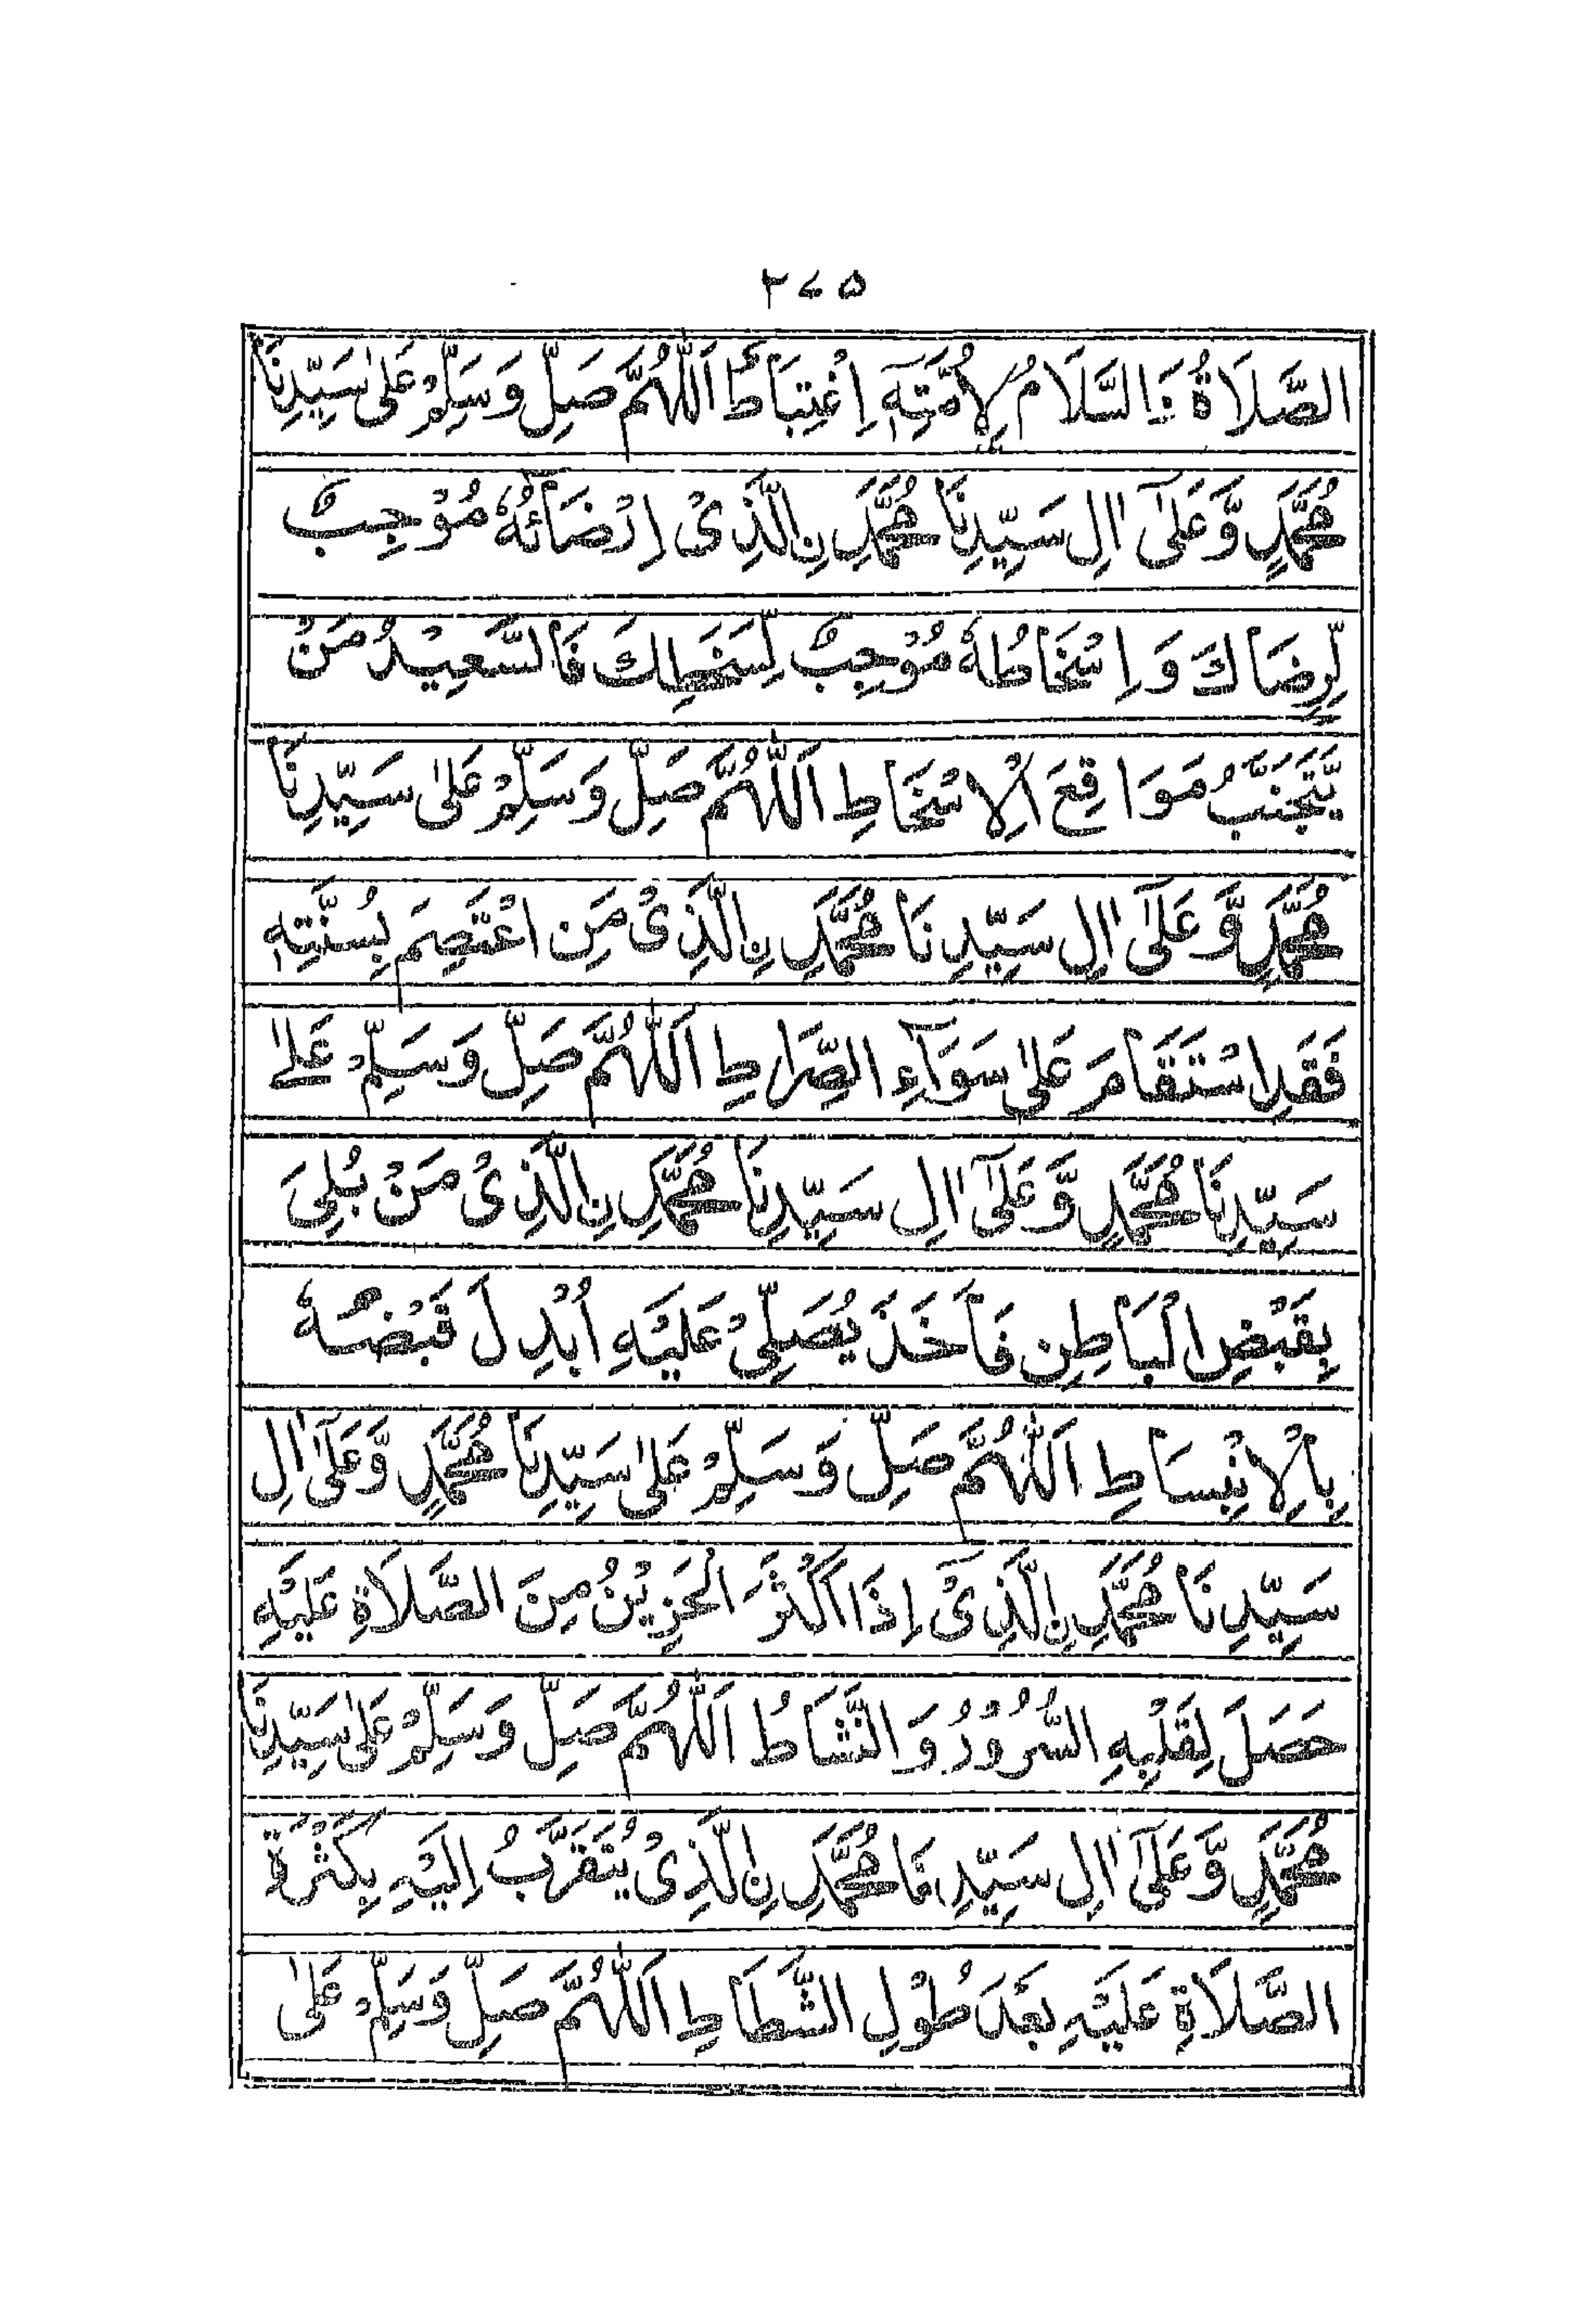 ۲۷۵
الصَّلَاةُ وَالسَّلَامُ لِاُمَّتِهٖٓ اِغْتِبَاطٌ اَللّٰهُمَّ صَلِّ وَسَلِّمْ عَلٰى سَيِّدِنَا
مُحَمَّدٍ وَّعَلٰٓى اٰلِ سَيِّدِنَا مُحَمَّدِ نِالَّذِىْ اِرْضَآئُهٗ مُوْجِبٌ
لِّرِضَاكَ وَاِسْخَاطُهٗ مُوْجِبٌ لِّسَخَطِكَ فَالسَّعِيْدُ مَنْ
يَّتَجَنَّبُ مَوَاقِعَ الْاِسْخَاطِ اَللّٰهُمَّ صَلِّ وَسَلِّمْ عَلٰى سَيِّدِنَا
مُحَمَّدٍ وَّعَلٰٓى اٰلِ سَيِّدِنَا مُحَمَّدِ نِالَّذِىْ مَنِ اعْتَصَمَ بِسُنَّتِهٖ
فَقَدِ اسْتَقَامَ عَلٰى سَوَآءِ الصِّرَاطِ اَللّٰهُمَّ صَلِّ وَسَلِّمْ عَلٰى
سَيِّدِنَا مُحَمَّدٍ وَّعَلٰٓى اٰلِ سَيِّدِنَا مُحَمَّدِ نِالَّذِىْ مَنْ بُلِىَ
بِقَبْضِ الْبَاطِنِ فَاَخَذَ يُصَلِّىْ عَلَيْهِ اُبْدِلَ قَبْضُهٗ
بِالْاِنْبِسَاطِ اَللّٰهُمَّ صَلِّ وَسَلِّمْ عَلٰى سَيِّدِنَا مُحَمَّدٍ وَّعَلٰٓى اٰلِ
سَيِّدِنَا مُحَمَّدِ نِالَّذِىْٓ اِذَا اَكْثَرَ الْحَزِيْنُ مِنَ الصَّلَاةِ عَلَيْهِ
حَصَلَ لِقَلْبِهِ السُّرُوْرُ وَالنَّشَاطُ اَللّٰهُمَّ صَلِّ وَسَلِّمْ عَلٰى سَيِّدِنَا
مُحَمَّدٍ وَّعَلٰٓى اٰلِ سَيِّدِنَا مُحَمَّدِ نِالَّذِىْ يُتَقَرَّبُ اِلَيْهِ بِكَثْرَةِ
الصَّلَاةِ عَلَيْهِ بَعْدَ طُوْلِ الشَّطَاطِ اَللّٰهُمَّ صَلِّ وَسَلِّمْ عَلٰى